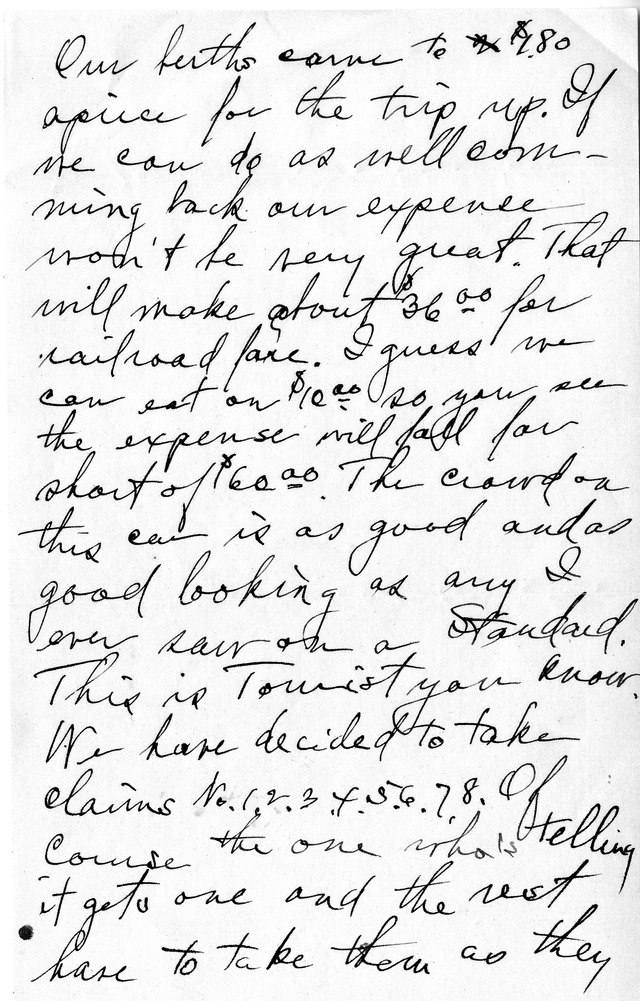 Our berths came to $7.80
apiece for the trip up. If
we can do as well com-
ming back our expense
won't be very great. That
will make about $36 00 for
railroad fare. I guess we
can eat on $10 00 so you see
the expense will fall far
short of $60 00. The crowd on
this car is as good and as
good looking as any I
ever saw on a Standard.
This is Tourist you know.
We have decided to take
claims No. 1. 2. 3. 4. 5. 6. 7. 8. Of
course the one who's telling
it gets one and the rest
have to take them as they